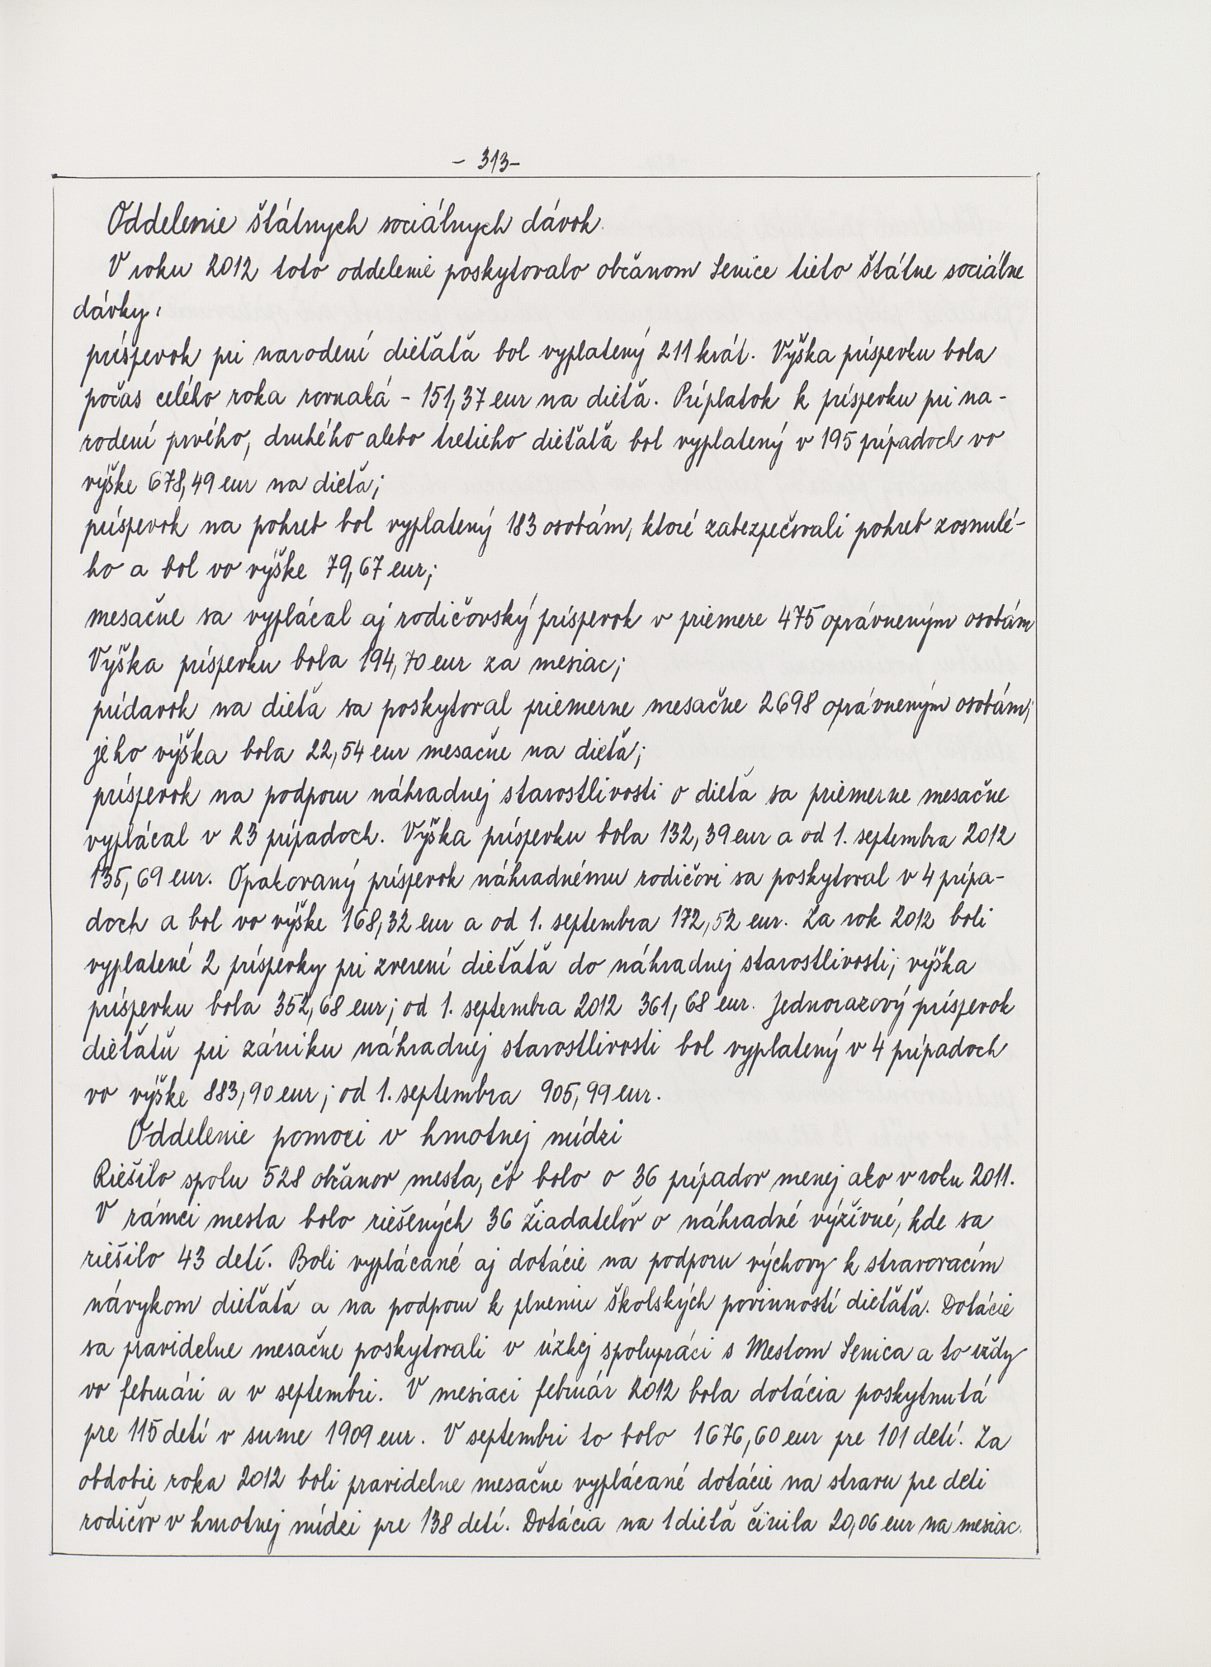 - 313 -
Oddelenie štátnych sociálnych dávok.
V roku 2012 toto oddelenie poskytovalo občanom Senice tieto štátne sociálne
dávky:
príspevok pri narodení dieťaťa bol vyplatený 211 krát. Výška príspevku bola
počas celého roka rovnaká - 151,37 eur na dieťa. Príplatok k príspevku pri na-
rodení prvého, druhého alebo tretieho dieťaťa bol vyplatený v 195 prípadoch vo
výške 678,49 eur na dieťa;
príspevok na pohreb bol vyplatený 183 osobám, ktoré zabezpečovali pohreb zosnulé-
ho a bol vo výške 79,67 eur;
mesačne sa vyplácal aj rodičovský príspevok v priemere 475 oprávneným osobám
Výška príspevku bola 194,70 eur za mesiac;
prídavok na dieťa sa poskytoval priemerne mesačne 2698 oprávneným osobám,
jeho výška bola 22,54 eur mesačne na dieťa;
príspevok na podporu náhradnej starostlivosti o dieťa sa priemerne mesačne
vyplácal v 23 prípadoch. Výška príspevku bola 132,39 eur a od 1. septembra 2012
135,69 eur. Opakovaný príspevok náhradnému rodičovi sa poskytoval v 4 prípa-
doch a bol vo výške 168,32 eur a od 1. septembra 172,52 eur. Za rok 2012 boli
vyplatené 2 príspevky pri zverení dieťaťa do náhradnej starostlivosti; výška
príspevku bola 352,68 eur; od 1. septembra 2012 361,68 eur. Jednorazový príspevok
dieťaťu pri zániku náhradnej starostlivosti bol vyplatený v 4 prípadoch
vo výške 883,90 eur; od 1. septembra 905,99 eur.
Oddelenie pomoci v hmotnej núdzi
Riešilo spolu 528 občanov mesta, čo bolo o 36 prípadov menej ako v roku 2011.
V rámci mesta bolo riešených 36 žiadateľov o náhradné výživné, kde sa
riešilo 43 detí. Boli vyplácané aj dotácie na podporu výchovy k stravovacím
návykom dieťaťa a na podporu k plneniu školských povinností dieťaťa. Dotácie
sa pravidelne mesačne poskytovali v úzkej spolupráci s Mestom Senica a to vždy
vo februári a v septembri. V mesiaci február 2012 bola dotácia poskytnutá
pre 115 detí v sume 1909 eur. V septembri to bolo 1676,60 eur pre 101 detí. Za
obdobie roka 2012 boli pravidelne mesačne vyplácané dotácie na stravu pre deti
rodičov v hmotnej núdzi pre 138 detí. Dotácia na 1 dieťa činila 20,06 eur na mesiac.